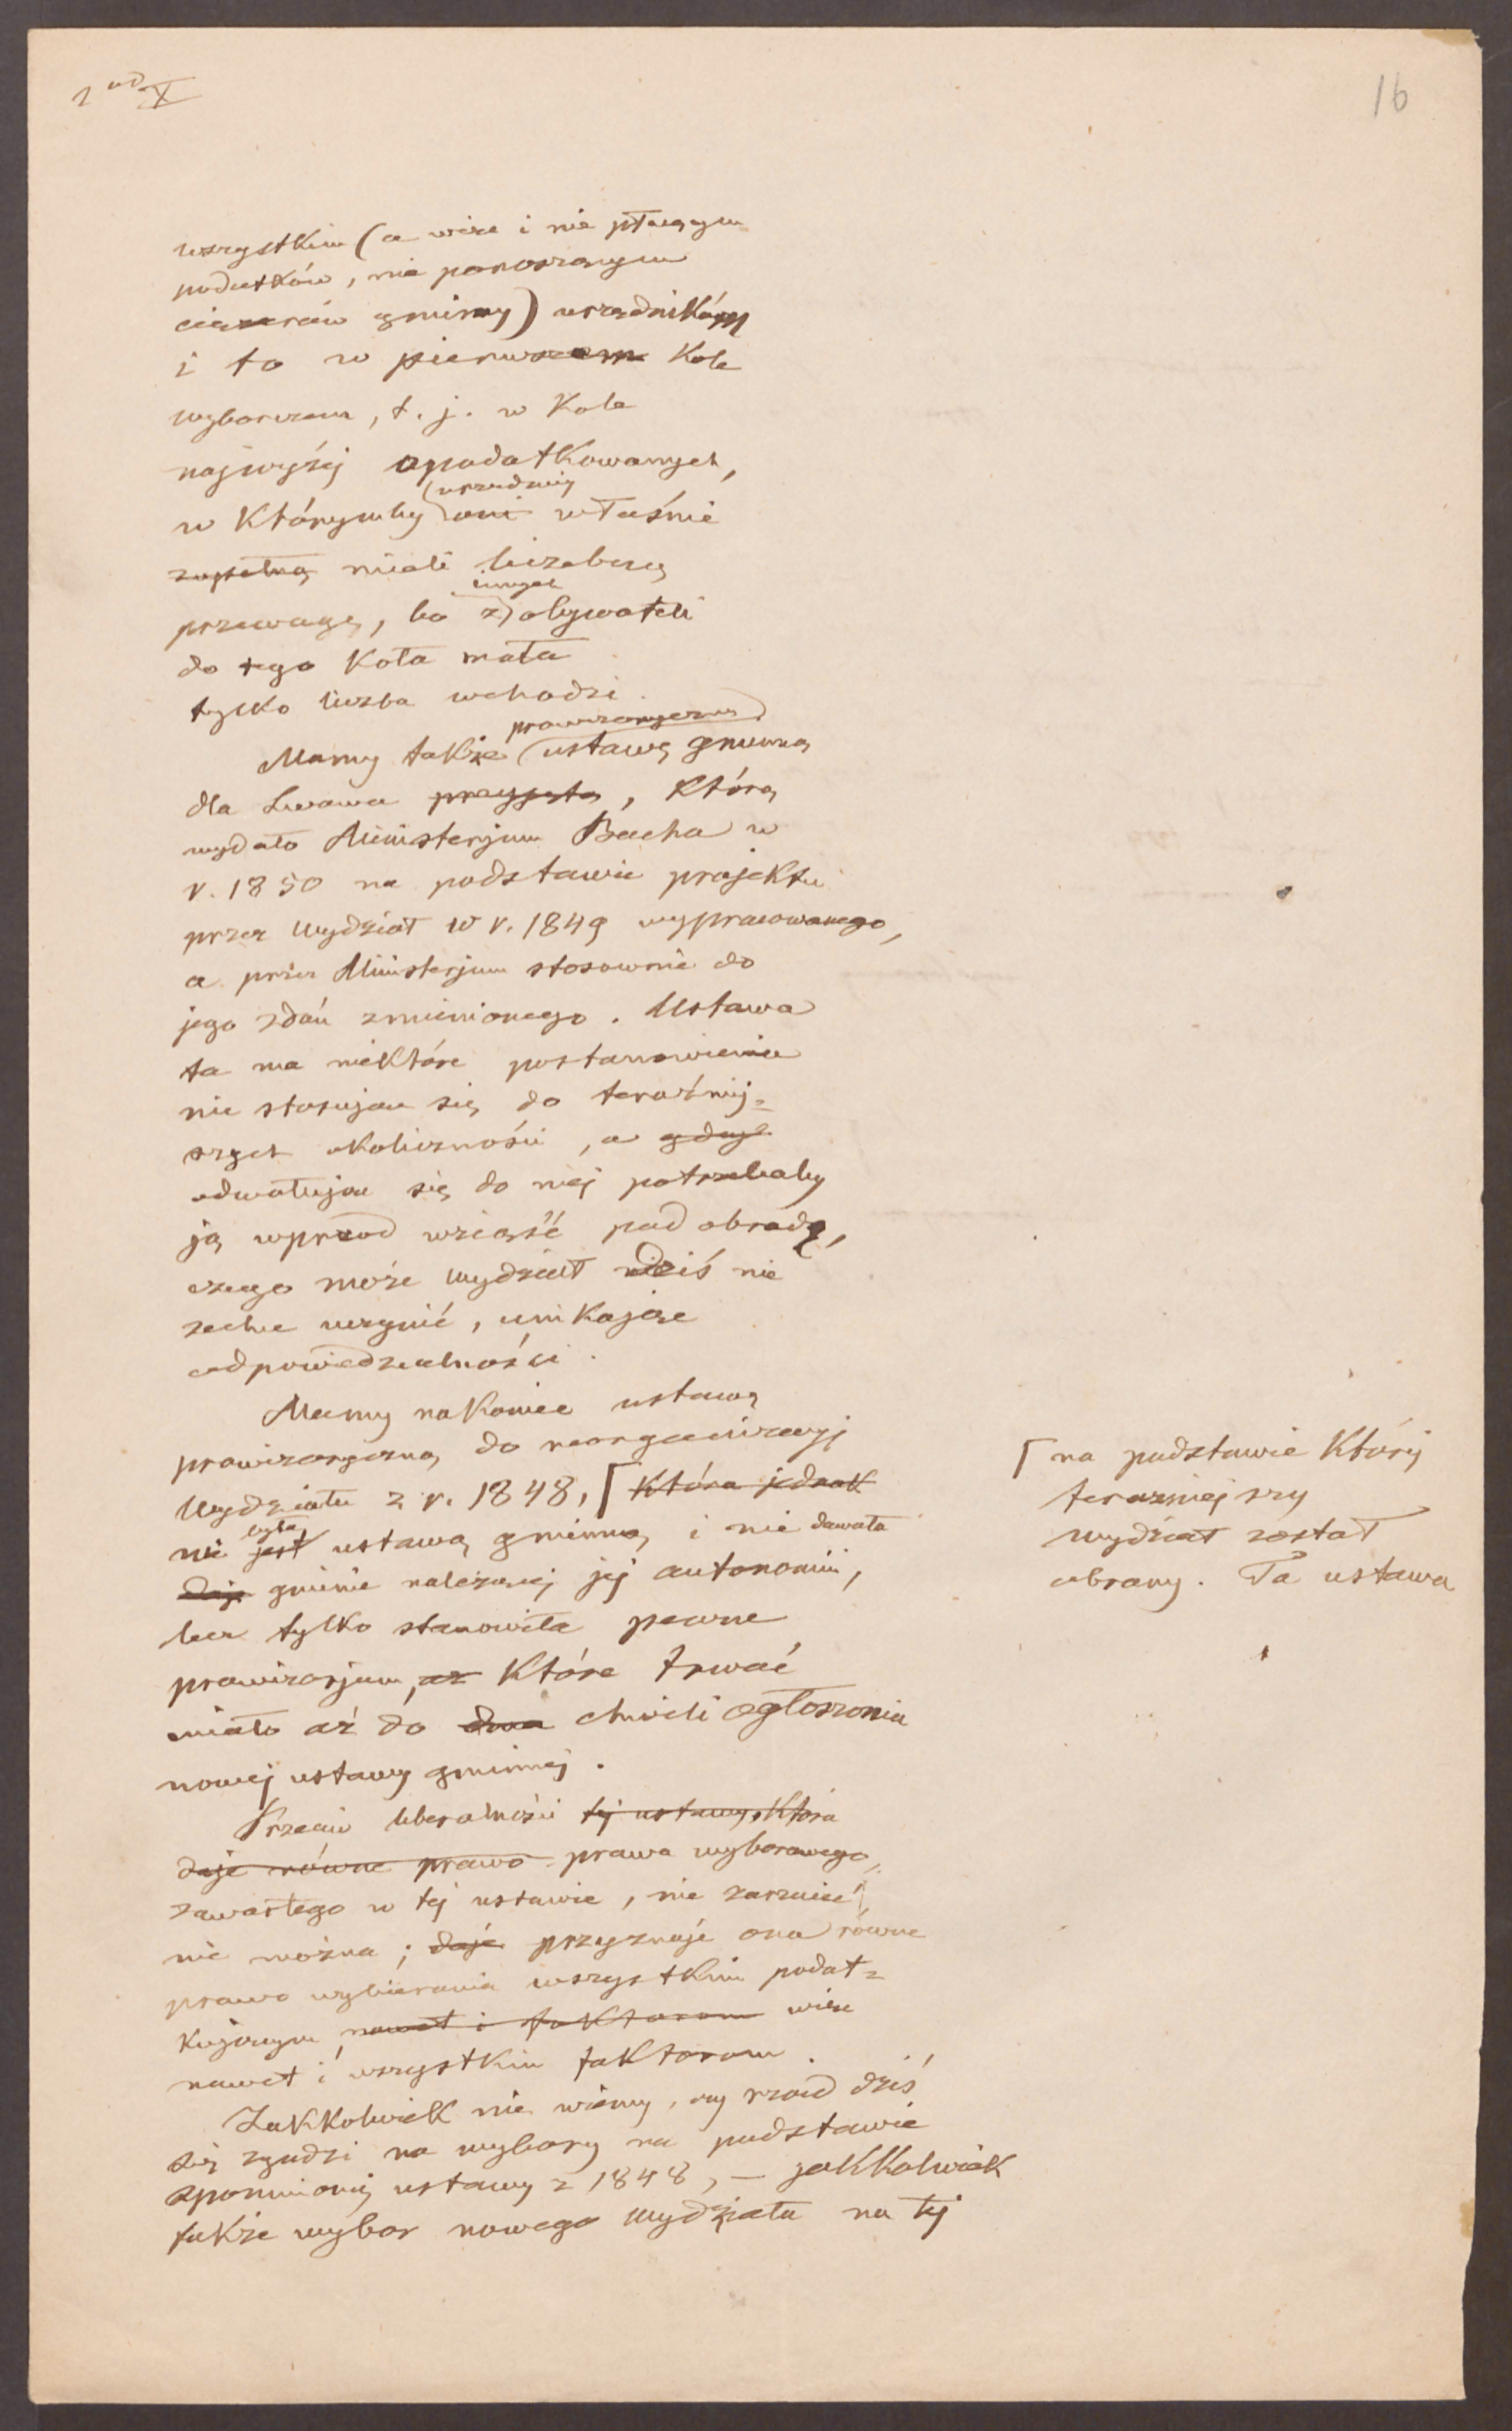 2 ad X
16
wszystkim (a więc i nie płacącym
podatków, nie ponoszącym
ciężarów gminy) urzędnikom
i to w pierwszem Kole
wyborczem, t. j. w Kole
najwyżej opodatkowanych,
(urzędnicy
w którymby oni właśnie
zupełną mieli liczebną
innych
przewagę, bo z obywateli
do tego Koła mała
tylko liczba wchodzi.
prowizoryczną
Mamy także ustawę gminną
dla Lwowa przyjętą, którą
wydało Ministerjum Bacha w
r. 1850 na podstawie projektu
przez Wydział w r. 1849 wypracowanego,
a przez Ministerjum stosownie do
jego zdań zmienionego. Ustawa
ta ma niektóre postanowienia
nie stosujące się do teraźniej=
szych okoliczności, a gdyż
odwołując się do niej potrzebaby
ją wprzod wziąść pod obradę,
czego może Wydział dziś nie
zechce uczynić, unikając
odpowiedzialności.
Mamy nakoniec ustawę
prowizoryczną do reorganizacyj
Wydziału z r. 1848, ⌈ która jednak
była
nie jest ustawą gminną i nie dawała
daje gminie należącej jej autonomii,
lecz tylko stanowiła pewne
prowizorjum, aż które trwać
miało aż do dnia chwili ogłoszenia
nowej ustawy gminnej.
⌈ na podstawie której
teraźniejszy
wydział został
obrany. Ta ustawa
Przeciw liberalności tej ustawy, która
daje równe prawo prawa wyborowego,
zawartego w tej ustawie, nie zarzucić
nie można; daje przyznaje ona równe
prawo wybierania wszystkim podat=
kującym, nawet i faktorom więc
nawet i wszystkim faktorom.
Jakkolwiek nie wiemy, czy rząd dziś
się zgodzi na wybory na podstawie
spomnionej ustawy z 1848, — jakkolwiek
także wybor nowego Wydziału na tej